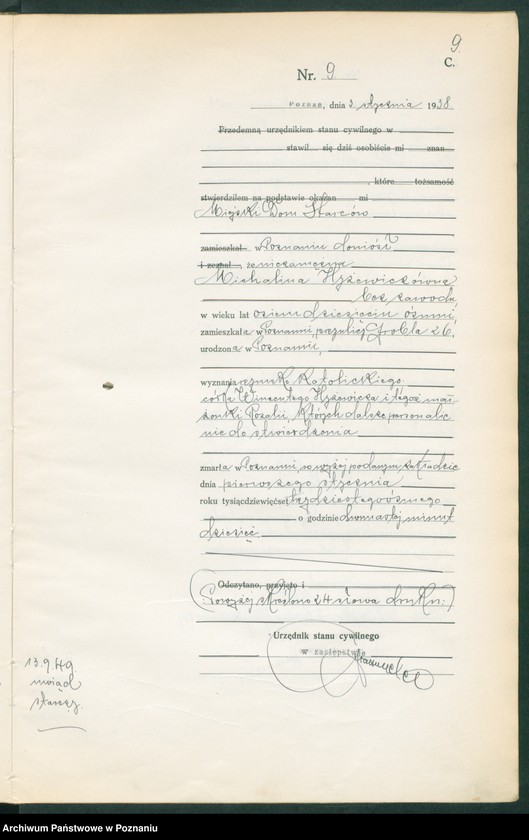 9.
C.
Nr. 9
Poznań, dnia 3 stycznia 1938
Przedemną urzędnikiem stanu cywilnego w
stawił się dziś osobiście mi znan
, które tożsamość
stwierdziłem na podstawie okazan mi
Miejski Dom Starców
zamieszkał w Poznaniu doniósł
i zeznał, że niezamężna
Michalina
bez zawodu
w wieku lat osiemdziesięciu ośmiu,
zamieszkała w Poznaniu, przy ulicy Grobla 26,
urodzona w Poznaniu,
wyznania rzymsko katolickiego
córka Wincentego i tegoż mał-
żonki Rozalii, których dalsze personalia
nie do stwierdzenia
zmarła w Poznaniu, w wyżej podanym zakładzie
dnia pierwszego stycznia
roku tysiącdziewięćset trzydziestegoósmego
o godzinie dwunastej minut
dziesięć.
Odczytano, przyjęto i
(Powyżej skreślono 24 słowa druku.)
Urzędnik stanu cywilnego
w zastępstwie
13.9.49
uwiąd
starczy
Archiwum Państwowe w Poznaniu